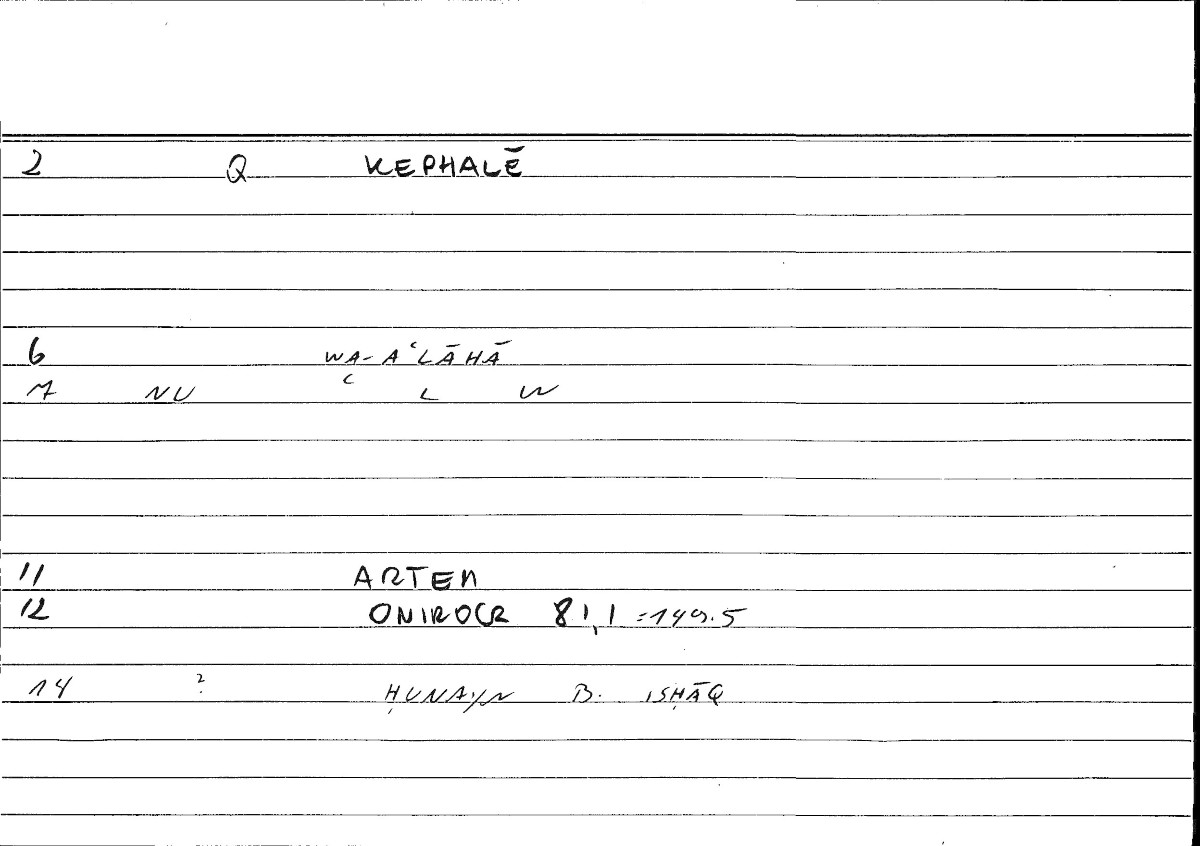 2 Q KEPHALĒ
6 WA-AʿLĀHĀ
7 NU ʿ L W
11 ARTEM
12 ONIROCR 81,1 =149.5
14 ? ḤUNAYN B. ISḤĀQ